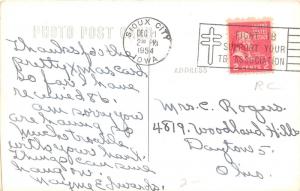 PHOTO POST
SIOUX CITY
DEC 21
2 PM
1954
IOWA
SUPPORT YOUR
TB ASSOCIATION
ADDRESS
Thanks for the
pretty xmas card
So far I have
received 86.
am sorry you
are having so
much trouble
with your hand.
Things can sure
hang on.
Wayne Edwards.
P.C
Mrs. C. Rogers
4819 Woodland Hills
Daytons 5
Ohio.
2-